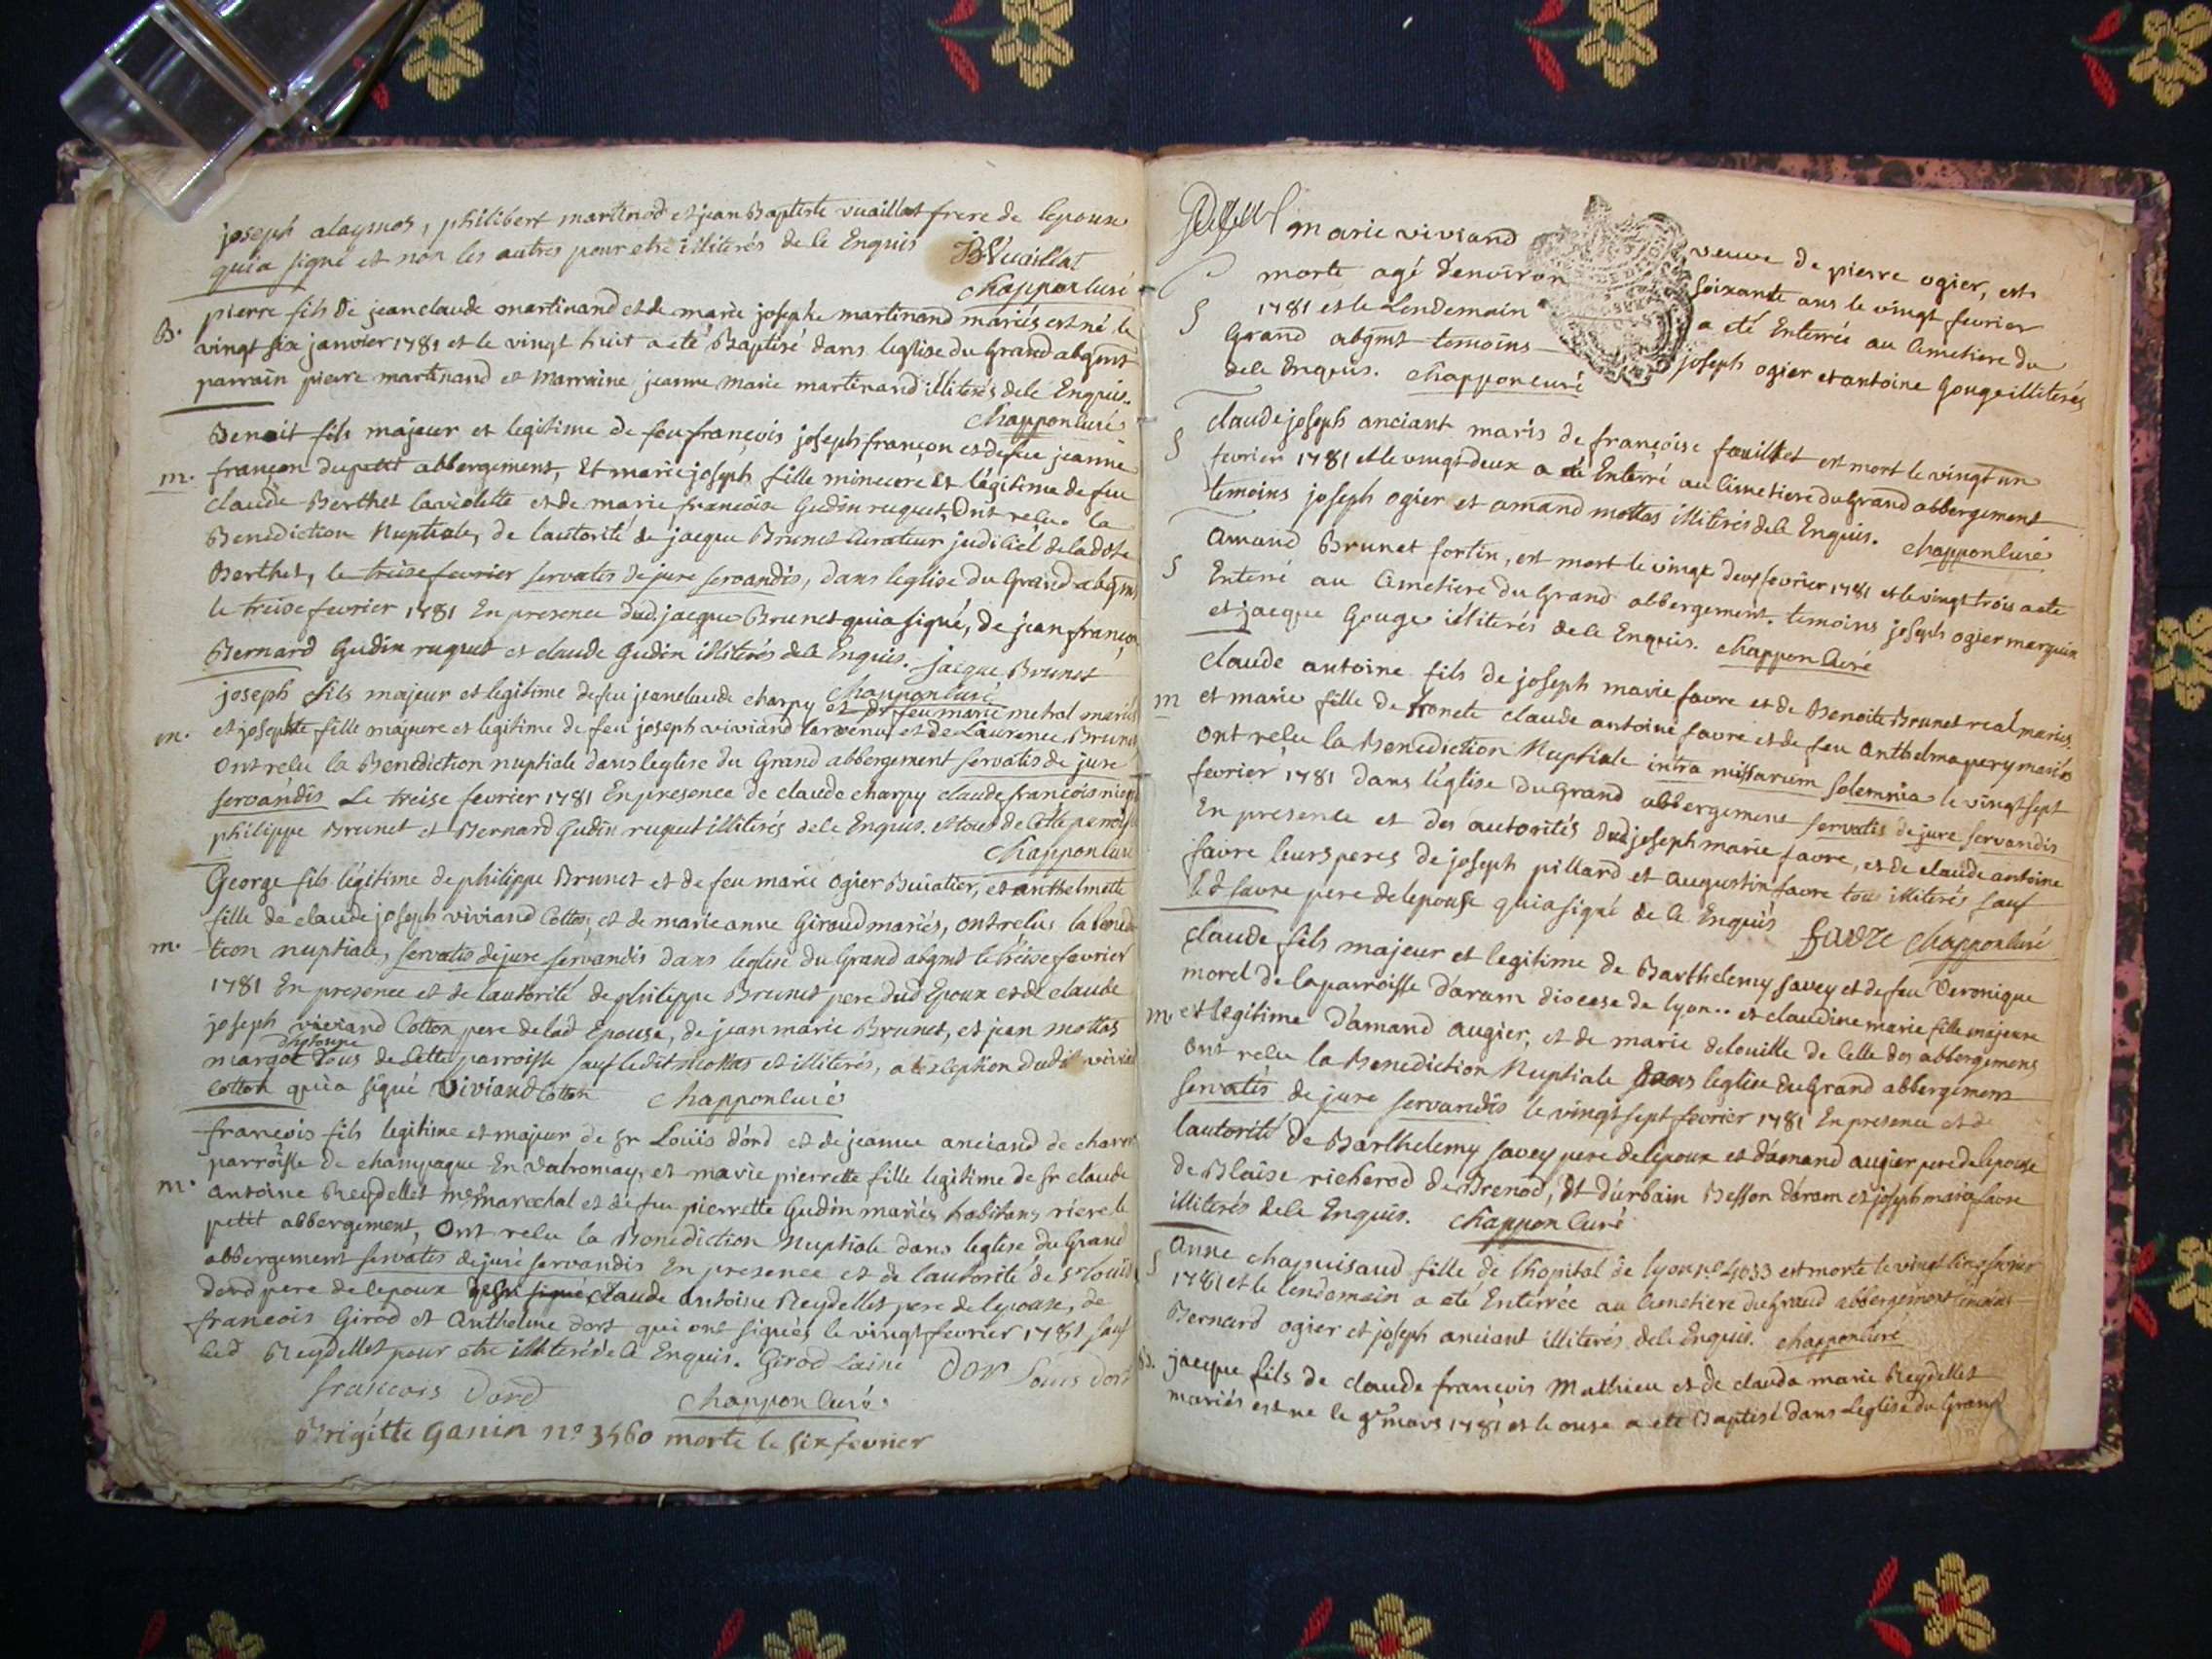 joseph alaymos, philibert martinod et jean Baptiste vuaillat frere de lepoux
qui a signé et non les autres pour etre illiterés de ce Enquis BVuaillat
chappon curé
B. pierre fils de jean claude martinand et de marie josephe martinand mariés est né le
vingt six janvier 1781 et le vingt huit a eté Baptisé dans leglise du Grand abgmt
parrain pierre martinand et Marraine jeanne Marie martinand illiterés de ce Enquis.
chappon curé
Benoit fils majeur et legitime de feu françois joseph françon et de feu jeanne
m. françon du petit abbergement, Et marie joseph fille mineure et légitime de feu
claude Berthet laviolette et de marie françoise Gudin ruquet, Ont reçu la
Benediction Nuptiale, de lautorité de jacque Brunet Curateur judiciel de lad dte
Berthet, le treise fevrier servatis de jure servandis, dans leglise du Grand abgmt
le treise fevrier 1781 En presence dud. jacque Brunet qui a signé, de jean françon
Bernard Gudin ruquet et claude Gudin illiterés de ce Enquis. Jacque Brunet
chappon curé
joseph fils majeur et legitime de feu jean claude charpy et de feu marie metral mariés
m. et josephte fille majeure et legitime de feu joseph viviand et de Laurence Brunet
Ont reçu la Benediction nuptiale dans leglise du Grand abbergement servatis de jure
servandis Le treise fevrier 1781 En presence de claude charpy claude françois
philippe Brunet et Bernard Gudin ruquet illiterés de ce Enquis. et tous de cette parroisse
chappon curé
George fils légitime de philippe Brunet et de feu marie Ogier Buiatier, et anthelmette
fille de claude joseph viviand Cotton, et de marie anne Giroud mariés, ont reçus la bened
m. tion nuptiale, servatis de jure servandis dans leglise du Grand abgmt le treise fevrier
1781 En presence et de lautorité de philippe Brunet pere dud Epoux et de claude
joseph viviand Cotton pere de lad Epouse, de jean marie Brunet, et jean mottas
margot tous de Cette parroisse sauf ledit mottas et illiterés, a lexception dudit viviand
cotton qui a signé Viviand Cotton chappon curé
françois fils legitime et majeur de Sr Louis dord et de jeanne anciand de
parroisse de champagne En Valromay, et marie pierrette fille legitime de Sr claude
m. antoine Reydellet me marechal et de feu pierrette Gudin mariés habitans riere le
petit abbergement, Ont reçu la Benediction Nuptiale dans leglise du Grand
abbergement servatis de jure servandis En presence et de lautorité de Sr Louis
dord pere de lepoux claude antoine Reydellet pere de lepouse, de
francois Girod et Anthelme dort qui ont signés le vingt fevrier 1781 sauf
led Reydellet pour etre illiteré de ce Enquis. Girod Lainé Dor Louis dord
francois Dord chappon curé.
Brigitte Ganin no 3560 morte le six fevrier
marie viviand veuve de pierre ogier, est
morte agé denviron soixante ans le vingt fevrier
S 1781 et le Lendemain a eté Enterrée au Cimetiere du
Grand abgmt temoins joseph ogier et antoine Gouge illiterés
de ce Enquis. chappon curé
claude joseph anciant maris de françoise fouillet est mort le vingt un
S fevrier 1781 et le vingt deux a eté Enterré au Cimetiere du Grand abbergement
temoins joseph ogier et amand mottas illiterés de ce Enquis. chappon curé
Amand Brunet fortin, est mort le vingt deux fevrier 1781 et le vingt trois a eté
S Enterré au Cimetiere du Grand abbergement. temoins joseph ogier marquin
et jacque Gouge illiterés de ce Enquis. chappon curé
claude antoine fils de joseph marie favre et de Benoite Brunet real mariés.
m et marie fille de honete claude antoine favre et de feu Anthelma pery mariés
Ont reçu la Benediction Nuptiale intra missarum solemnia le vingt sept
fevrier 1781 dans l'église du Grand abbergement servatis de jure servandis
En presence et des autorités dud joseph marie favre, et de claude antoine
favre leurs peres de joseph pillard et augustin favre tous illiterés sauf
led favre pere de lepouse qui a signé de ce Enquis favre chappon curé
Claude fils majeur et legitime de Barthelemy savey et de feu Veronique
morel de la parroisse d'aram diocese de lyon.. et claudine marie fille majeure
m. et legitime d'amand augier, et de marie delouille de Celle des abbergemens
Ont reçu la Benediction Nuptiale dans leglise du Grand abbergement
servatis de jure servandis le vingt sept fevrier 1781 En presence et de
lautorité de Barthelemy savey pere de lepoux et d'amand augier pere de lepouse
de Blaise richerod de Brenod, et d'urbain Besson d'aram et joseph marie favre
illiterés de ce Enquis. chappon curé
S Anne chapuisaud fille de lhopital de lyon no 4033 est morte le vingt cinq fevrier
1781 et le lendemain a eté Enterrée au Cimetiere du Grand abbergement temoins
Bernard ogier et joseph anciant illiterés de ce Enquis. chappon curé
B. jacque fils de claude françois Mathieu et de claude marie Reydellet
mariés est né le 9e mars 1781 et le onse a eté Baptisé dans Leglise du Grand